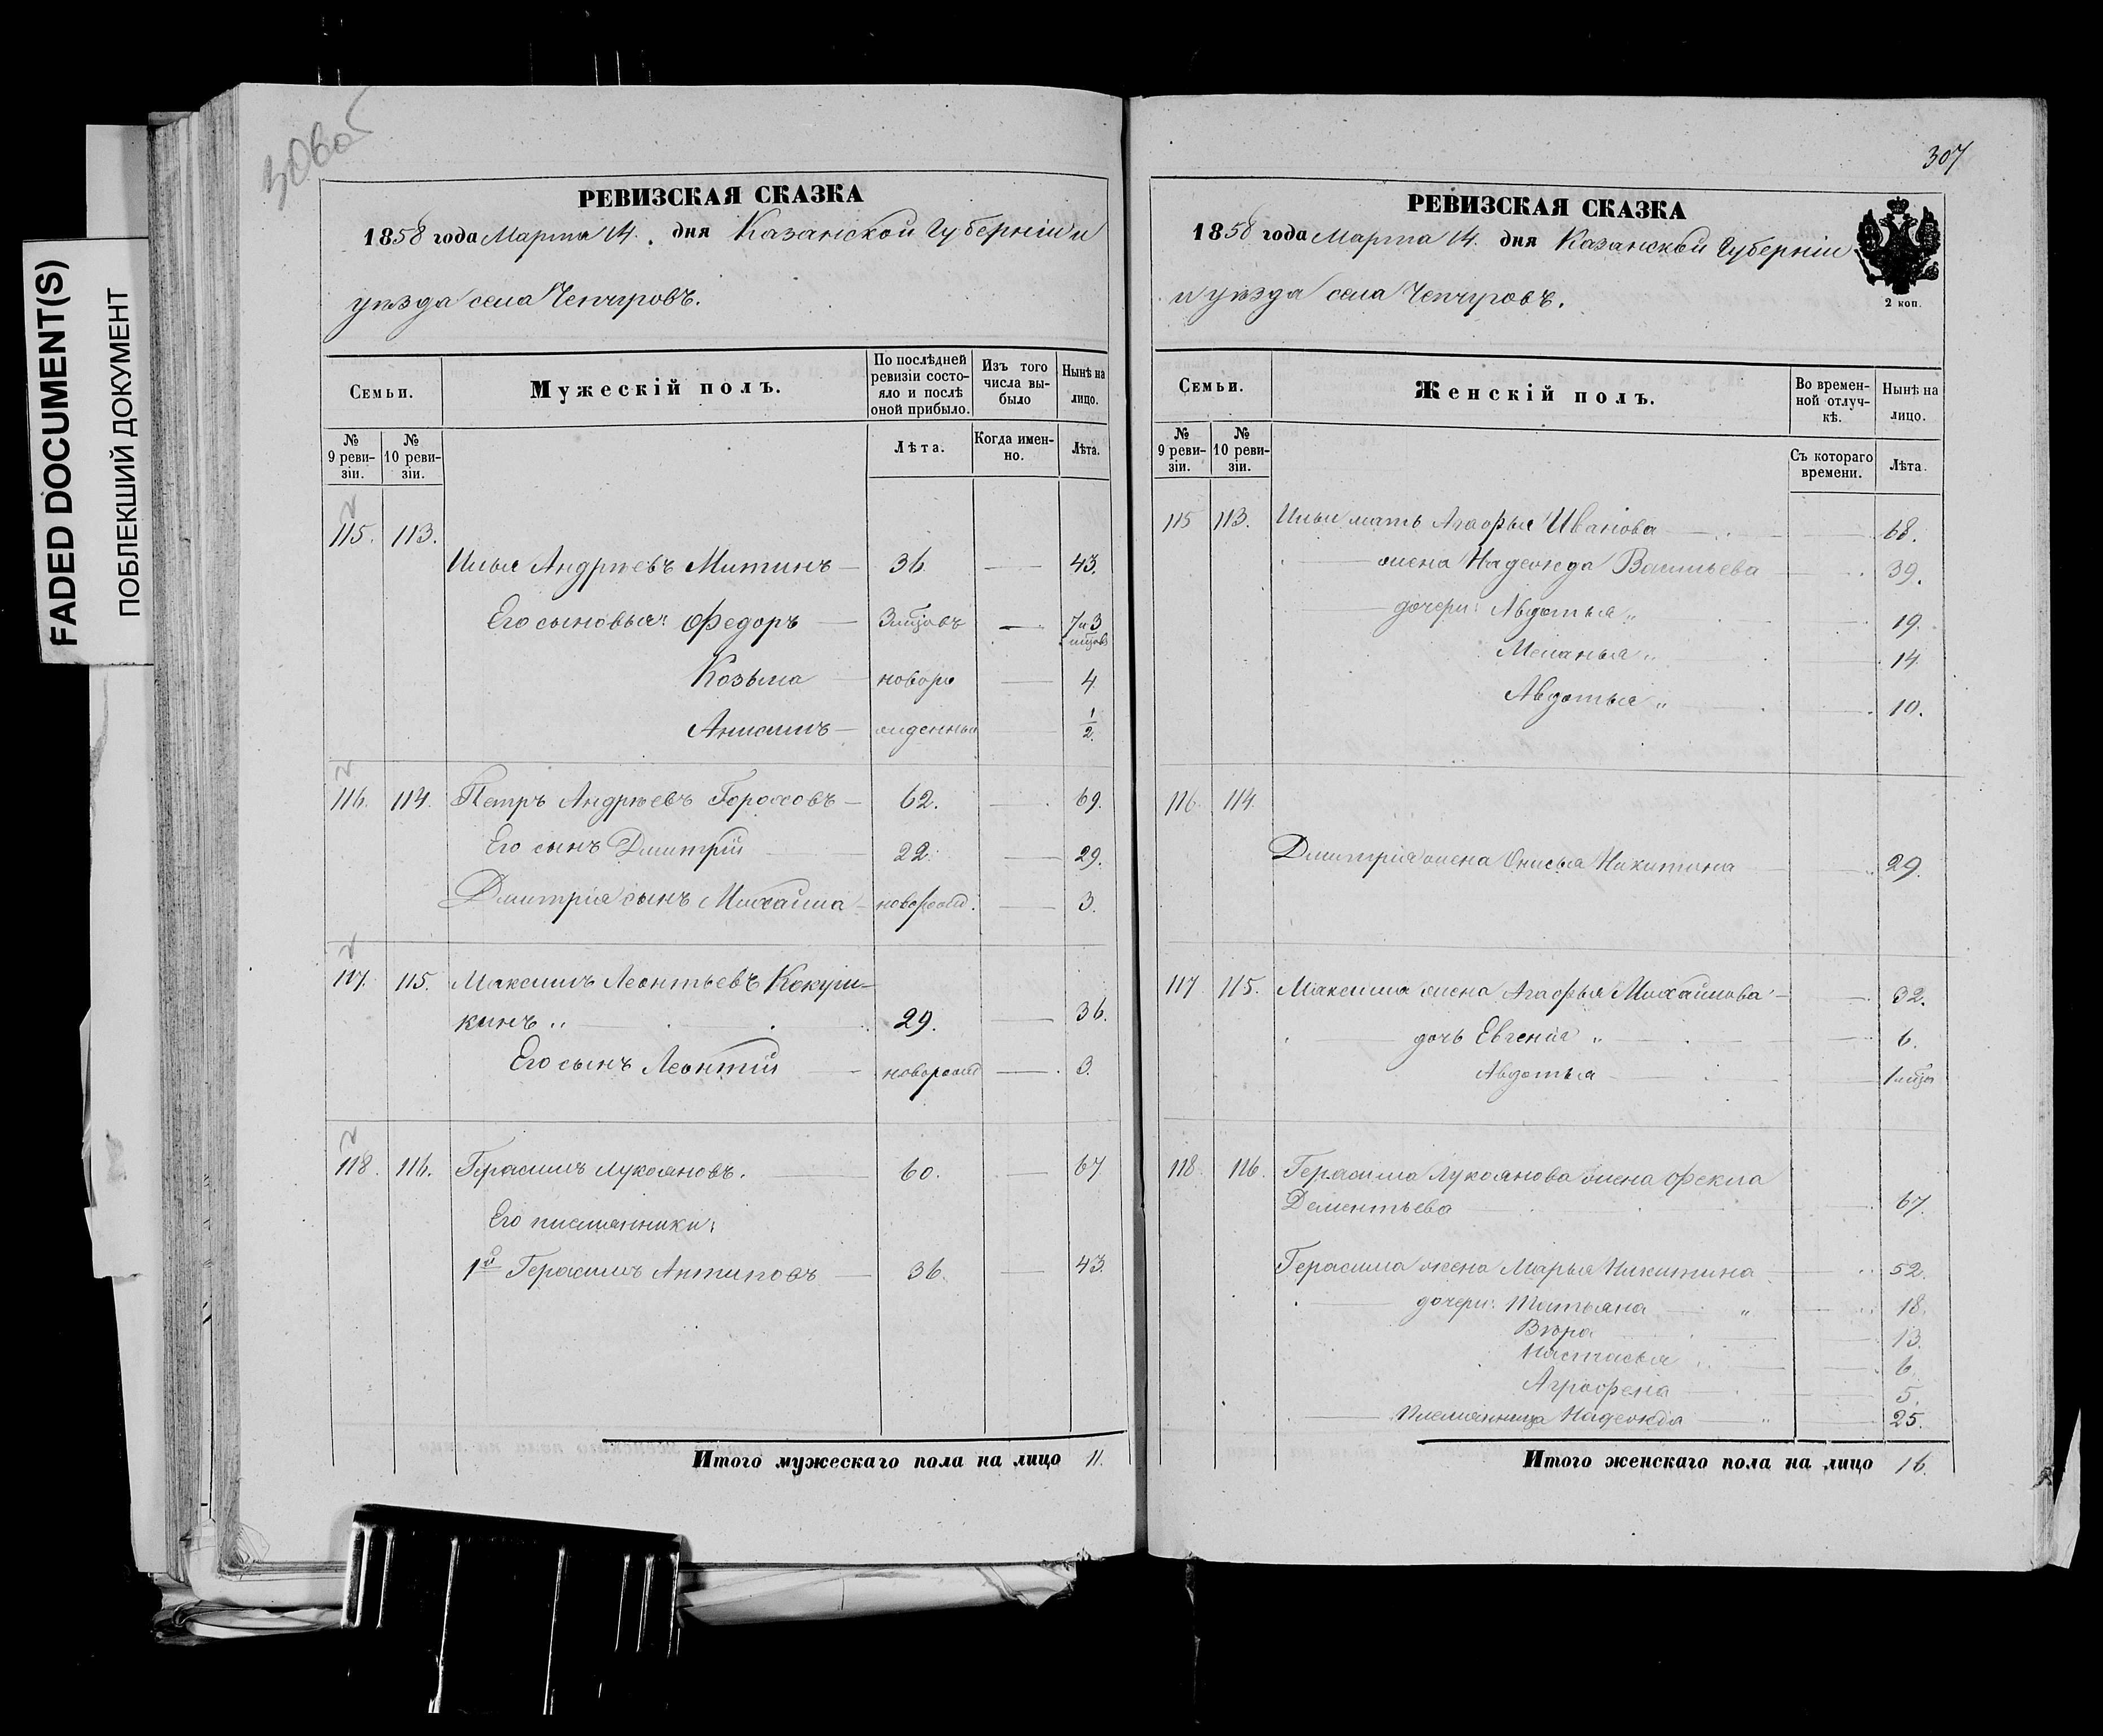 FADED DOCUMENT(S)
ПОБЛЕКШИЙ ДОКУМЕНТ
306 об
РЕВИЗСКАЯ СКАЗКА
1858 года Марта 14. дня Казанской Губерніи и
уѣзда села Чепчуровъ.
Семьи.
Мужескій полъ.
По послѣдней ревизіи состояло и послѣ оной прибыло.
Изъ того числа выбыло
Нынѣ на лицо.
№ 9 ревизіи.
№ 10 ревизіи.
Лѣта.
Когда именно.
Лѣта.
115. 113.
Илья Андреевъ Митинъ — 36 — 43.
Его сыновья: Федоръ — 3 мцовъ — 7 и 3 мцов
Козьма — новоро — 4
Анисимъ — жденныи — 1/2.
116. 114. Петръ Андреевъ Гороховъ — 62. — 69.
Его сынъ Дмитрій — 22. — 29.
Дмитрія сынъ Михайла — новорожд. — 3.
117. 115. Максимъ Леонтьевъ Кокуш-
кинъ „ — 29. — 36.
Его сынъ Леонтій — новорожд — 3.
118. 116. Герасимъ Лукояновъ. — 60. — 67
Его племянники:
1й Герасимъ Антиповъ — 36. — 43.
Итого мужескаго пола на лицо 11.
307
РЕВИЗСКАЯ СКАЗКА
1858 года Марта 14. дня Казанской Губерніи
и уѣзда села Чепчуровъ.
2 коп.
Семьи.
Женскій полъ.
Во временной отлучкѣ.
Нынѣ на лицо.
№ 9 ревизіи.
№ 10 ревизіи.
Съ котораго времени.
Лѣта.
115 113. Ильи мать Агафья Иванова — 68.
— жена Надежда Васильева — 39.
— дочери: Авдотья „ — 19.
Меланья „ — 14.
Авдотья „ — 10.
116. 114.
Дмитрія жена Онисья Никитина — 29.
117 115. Максима жена Агафья Михайлова — 32.
— дочь Евгенія „ — 6.
Авдотья — 1 мцъ
118. 116. Герасима Лукоянова жена Фекла
Дементьева — 67.
Герасима жена Марья Никитина — 52.
— дочери: Татьяна — „ — 18.
Вѣра — 13.
Настасья „ — 6
Аграфена — 5.
— племянница Надежда — „ — 25.
Итого женскаго пола на лицо 16.